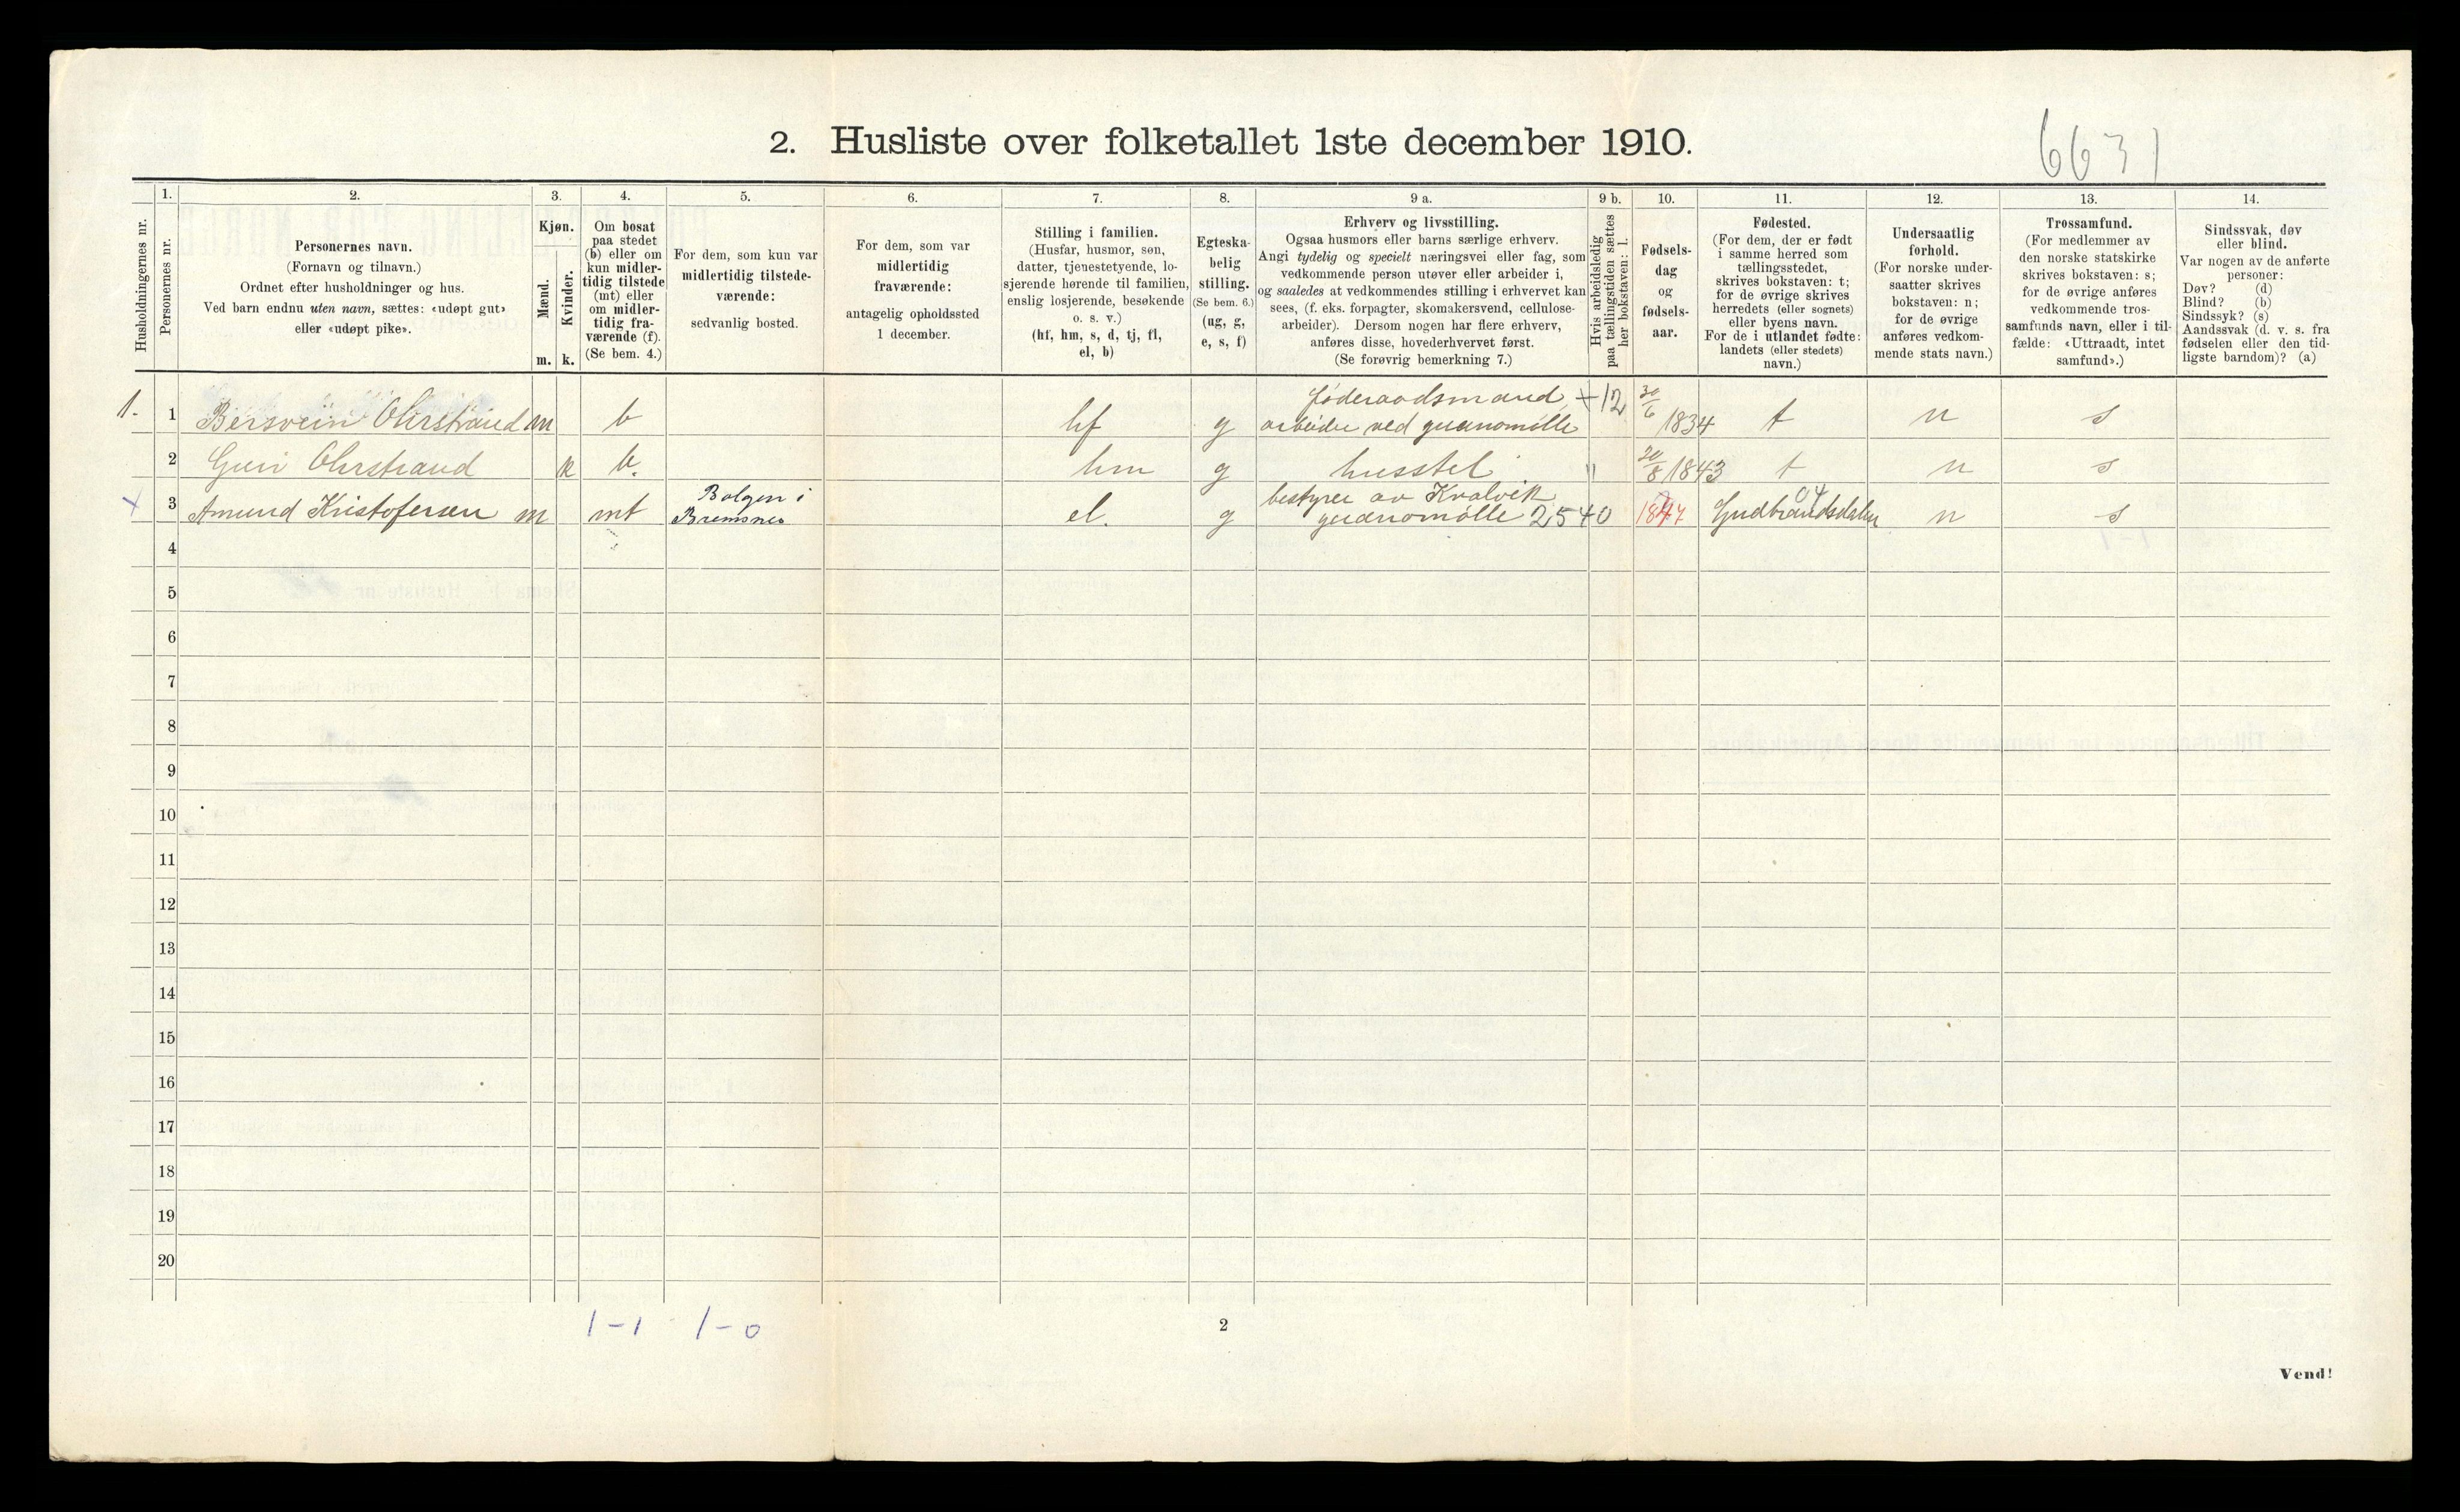 6631
2. Husliste over folketallet 1ste december 1910.
1. 2. 3. 4. 5. 6. 7. 8. 9 a. 9 b. 10. 11. 12. 13. 14.
Husholdningernes nr.
Personernes nr.
Personernes navn.
(Fornavn og tilnavn.)
Ordnet efter husholdninger og hus.
Ved barn endnu uten navn, sættes: «udøpt gut»
eller «udøpt pike».
Kjøn.
Mænd.
Kvinder.
m. k.
Om bosat
paa stedet
(b) eller om
kun midler-
tidig tilstede
(mt) eller
om midler-
tidig fra-
værende (f).
(Se bem. 4.)
For dem, som kun var
midlertidig tilstede-
værende:
sedvanlig bosted.
For dem, som var
midlertidig
fraværende:
antagelig opholdssted
1 december.
Stilling i familien.
(Husfar, husmor, søn,
datter, tjenestetyende, lo-
sjerende hørende til familien,
enslig losjerende, besøkende
o. s. v.)
(hf, hm, s, d, tj, fl,
el, b)
Egteska-
belig
stilling.
(Se bem. 6.)
(ug, g,
e, s, f)
Erhverv og livsstilling.
Ogsaa husmors eller barns særlige erhverv.
Angi tydelig og specielt næringsvei eller fag, som
vedkommende person utøver eller arbeider i,
og saaledes at vedkommendes stilling i erhvervet kan
sees, (f. eks. forpagter, skomakersvend, cellulose-
arbeider). Dersom nogen har flere erhverv,
anføres disse, hovederhvervet først.
(Se forøvrig bemerkning 7.)
Hvis arbeidsledig
paa tællingstiden sættes
her bokstaven: l.
Fødsels-
dag
og
fødsels-
aar.
Fødested.
(For dem, der er født
i samme herred som
tællingsstedet,
skrives bokstaven: t;
for de øvrige skrives
herredets (eller sognets)
eller byens navn.
For de i utlandet fødte:
landets (eller stedets)
navn.)
Undersaatlig
forhold.
(For norske under-
saatter skrives
bokstaven: n;
for de øvrige
anføres vedkom-
mende stats navn.)
Trossamfund.
(For medlemmer av
den norske statskirke
skrives bokstaven: s;
for de øvrige anføres
vedkommende tros-
samfunds navn, eller i til-
fælde: «Uttraadt, intet
samfund».)
Sindssvak, døv
eller blind.
Var nogen av de anførte
personer:
Døv? (d)
Blind? (b)
Sindssyk? (s)
Aandssvak (d. v. s. fra
fødselen eller den tid-
ligste barndom)? (a)
føderaadsmand, +12 30/6
1. 1 Bersvein Ohrstrand m b hf g arbeider ved guanomølle 1834 t n s
2 Guri Ohrstrand k b. hm g husstel " 20/8 1843 t n s
Bolgen i bestyrer av Kvalvik 04
x 3 Amund Kristofersen m mt Bremsnes el. g guanomølle 2540 1847 Gudbrandsdalen n s
4
5
6
7
8
9
10
11
12
13
14
15
16
17
18
19
20
1-1 1-0
2
Vend!